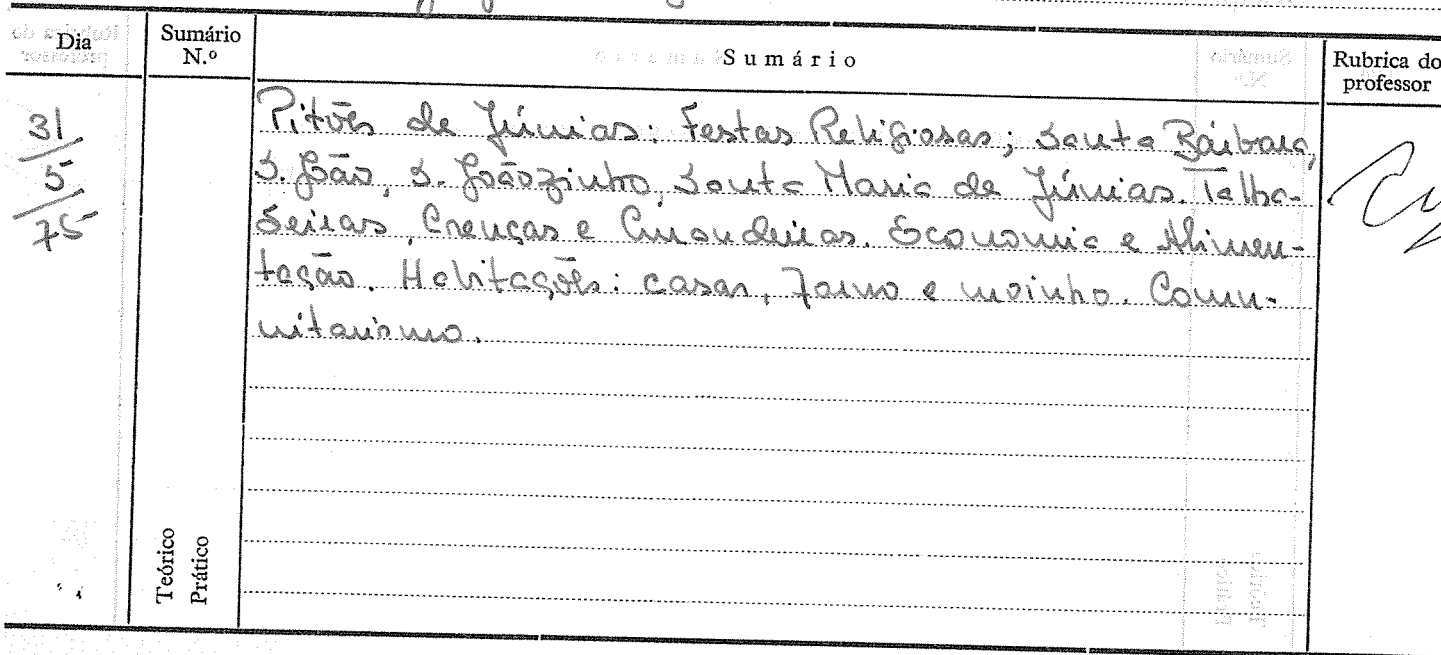 Dia
Sumário N.º
Sumário
Rubrica do professor
31/5/75
Pitões de Júnias: Festas Religiosas; Santa Bárbara,
S. João, S. Joãozinho, Santa Maria de Júnias. Talha-
seixas, Crenças e Curandeiras. Economia e Alimen-
tação. Habitações: casas, forno e moinho. Comu-
nitarismo.
Teórico
Prático